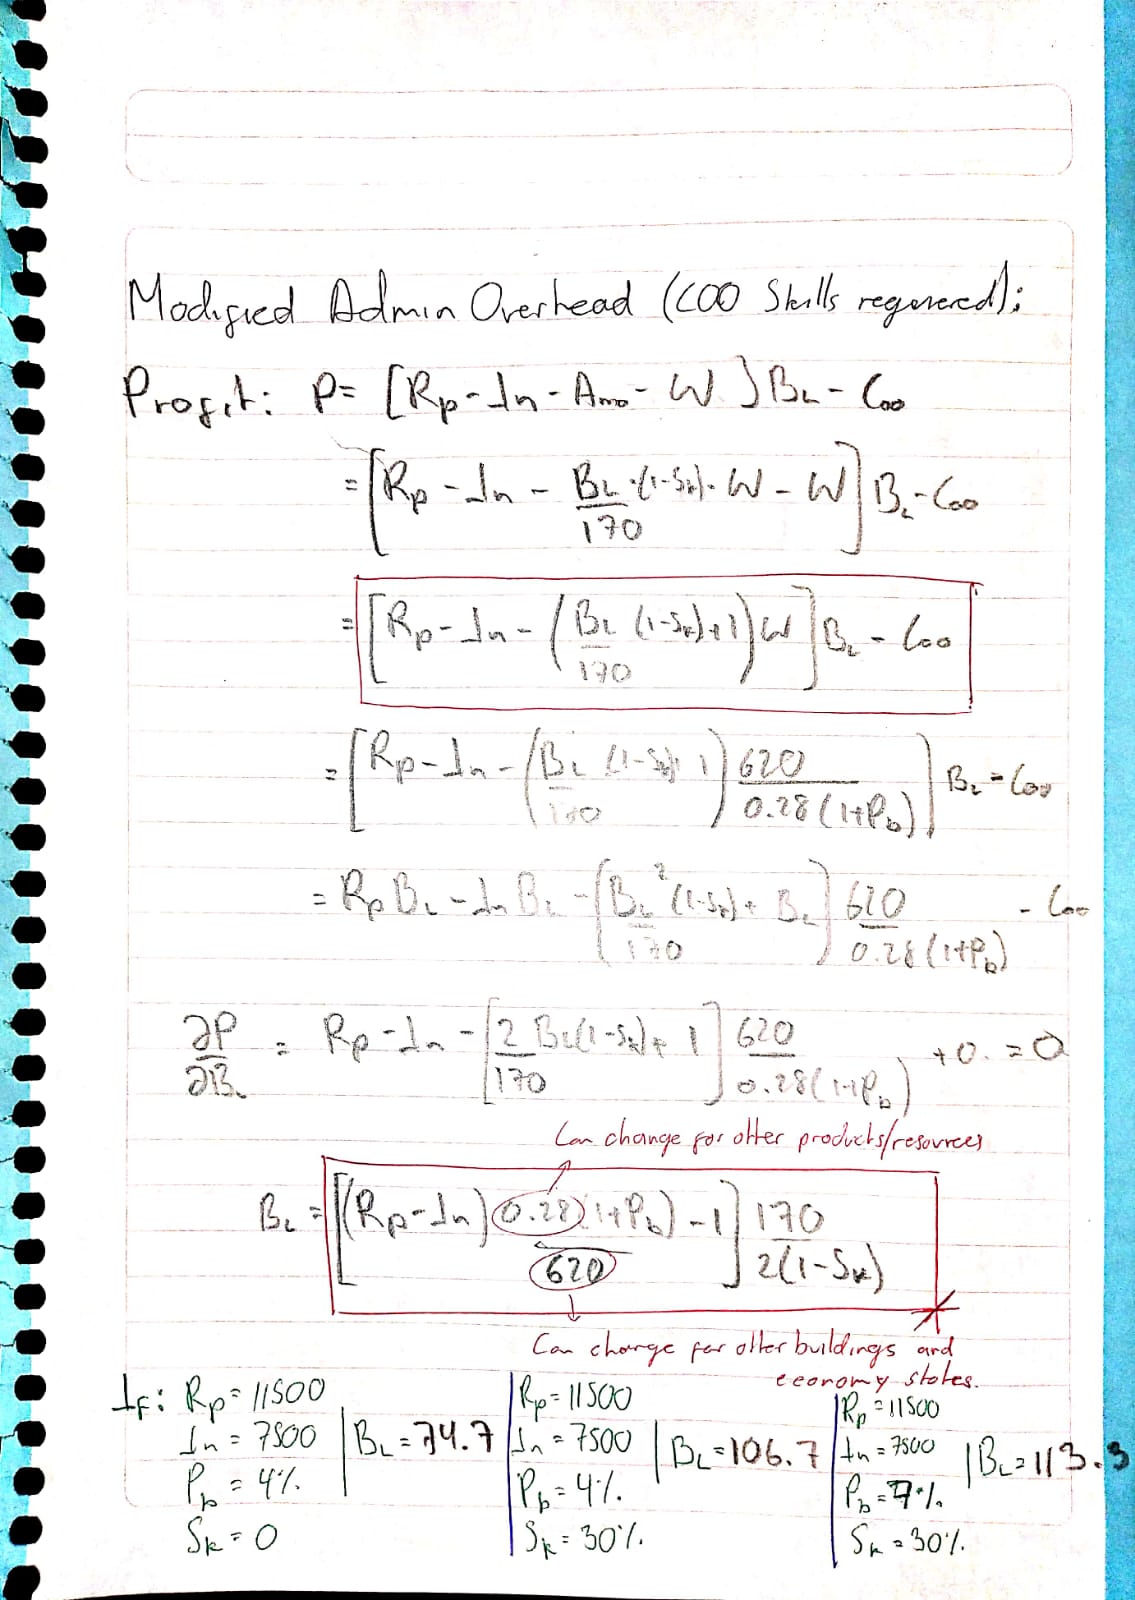 Modified Admin Overhead (COO Skills regenered);
Profit: P= [Rp - In - Amo - W] BL - Coo
= [Rp - In - BL/170 · (1-Sk) · W - W] BL - Coo
= [Rp - In - (BL/170 (1-Sk) + 1) W] BL - Coo
= [Rp - In - (BL/170 (1-Sk) + 1) 620/0.28(1+Pb)] BL - Coo
= Rp BL - In BL - [BL²/170 (1-Sk) + BL] 620/0.28(1+Pb) - Coo
∂P/∂BL = Rp - In - [2/170 BL(1-Sk) + 1] 620/0.28(1+Pb) + 0. = 0
Can change for other products/resources
BL = [(Rp - In) 0.28(1+Pb)/620 - 1] 170/2(1-Sk)
Can change for other buildings and
economy states.
If: Rp = 11500
In = 7500
Pb = 4%
Sk = 0
BL = 74.7
Rp = 11500
In = 7500
Pb = 4%.
Sk = 30%.
BL = 106.7
Rp = 11500
In = 7500
Pb = 7%.
Sk = 30%.
BL = 113.3